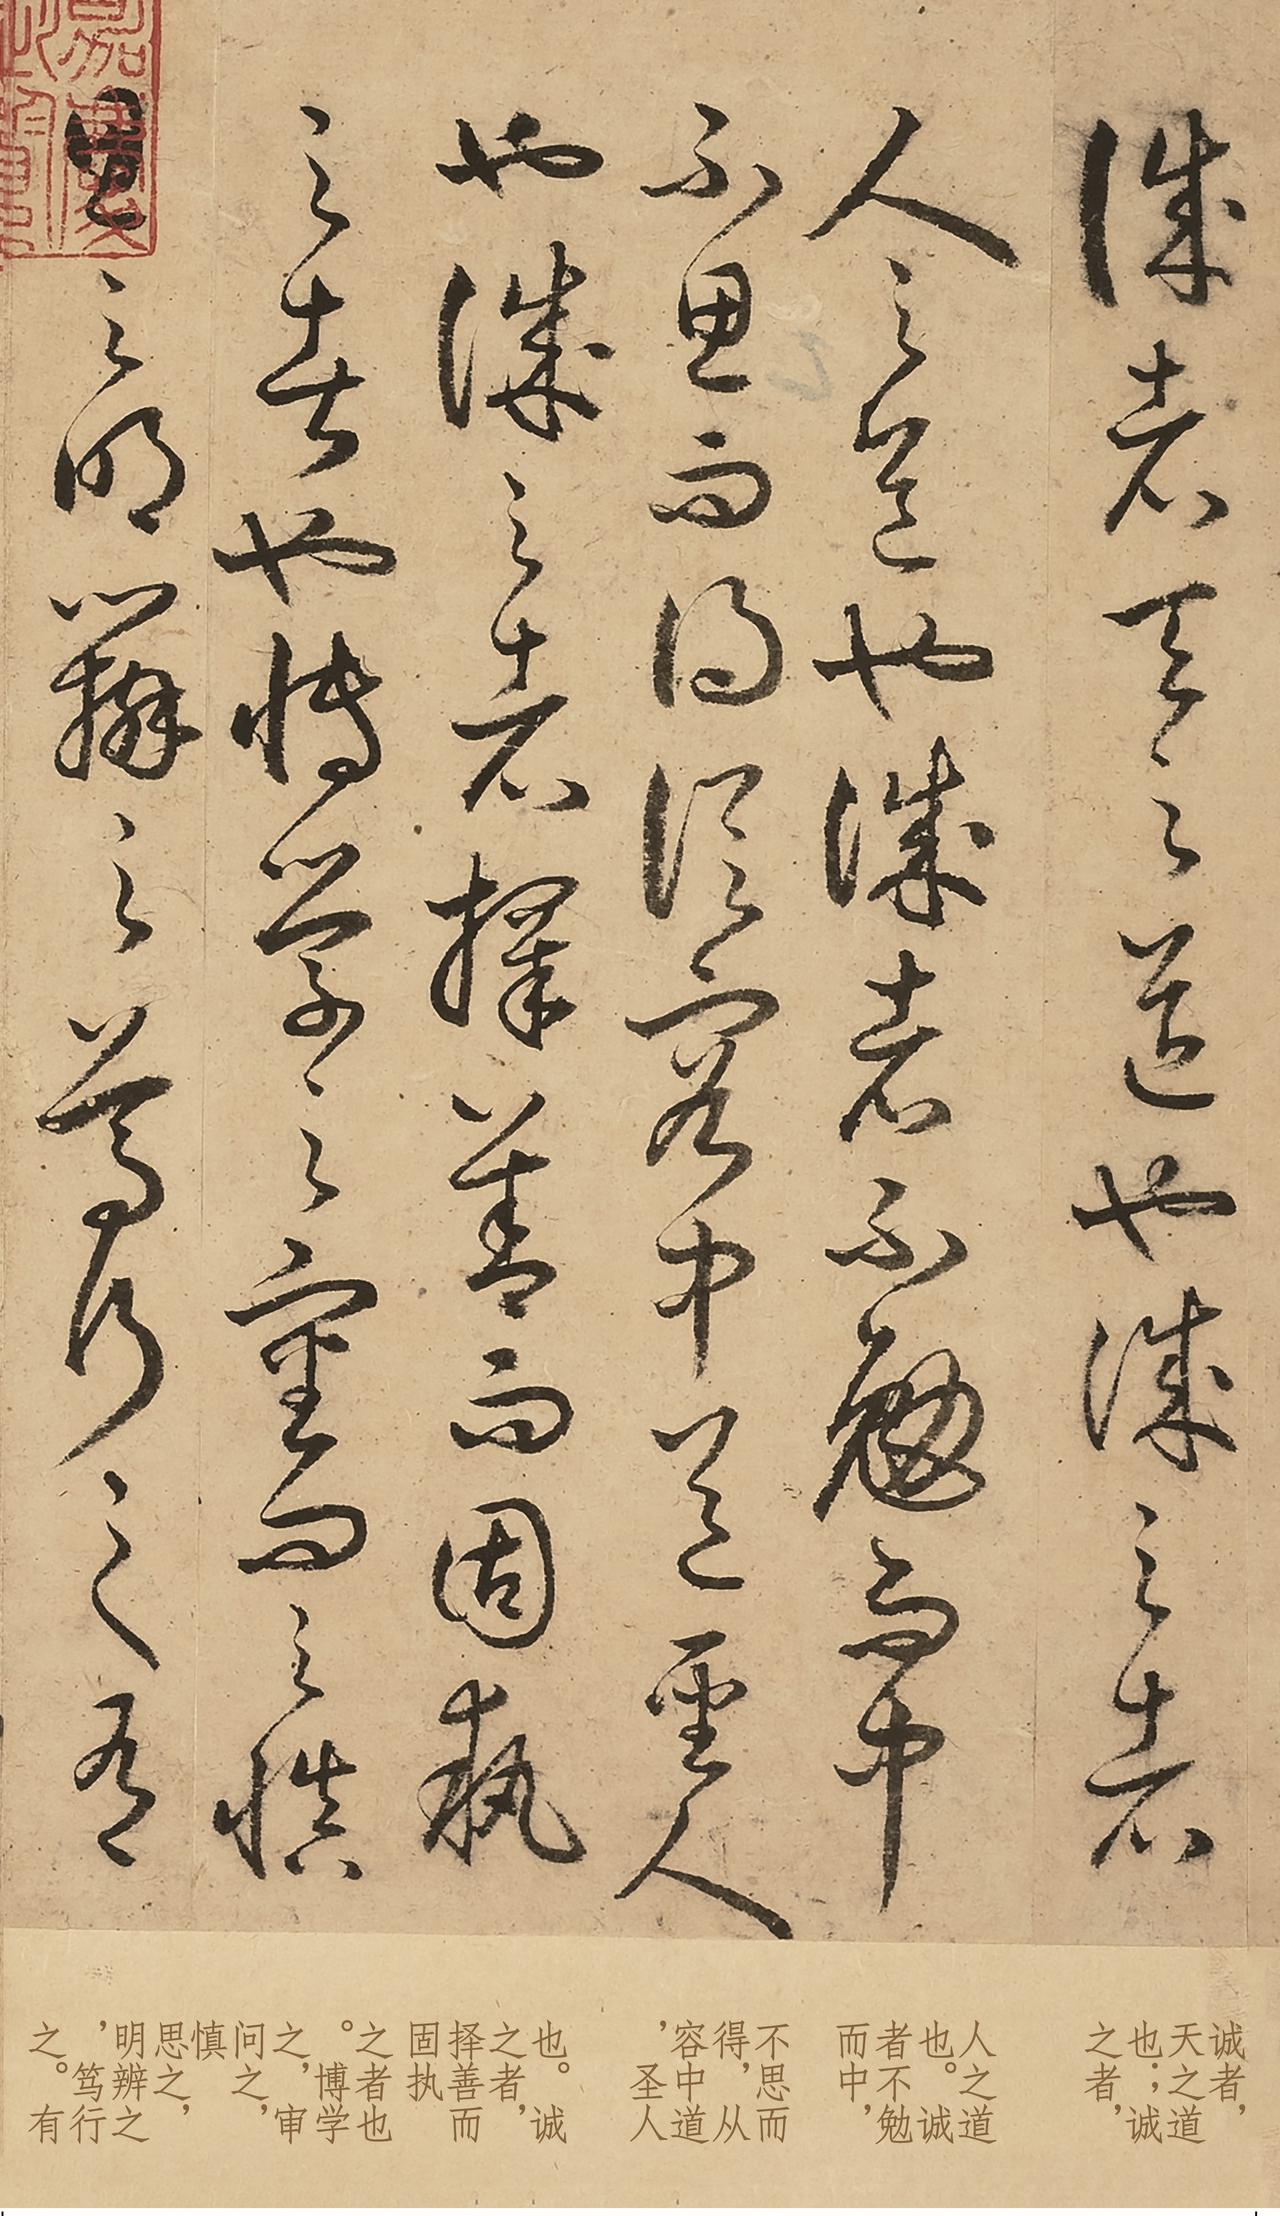 誠者天之道也誠之者
人之道也誠者不勉而中
不思而得從容中道聖人
也誠之者擇善而固執
之者也博學之審問之慎
思之明辨之篤行之有
诚者，
天之道
也；诚
之者，
人之道
也。诚
者不勉
而中，
不思而
得，从
容中道
，圣人
也。诚
之者，
择善而
固执
之者也
。博学
之，审
问之，
慎
思之，
明辨之
，笃行
之。有